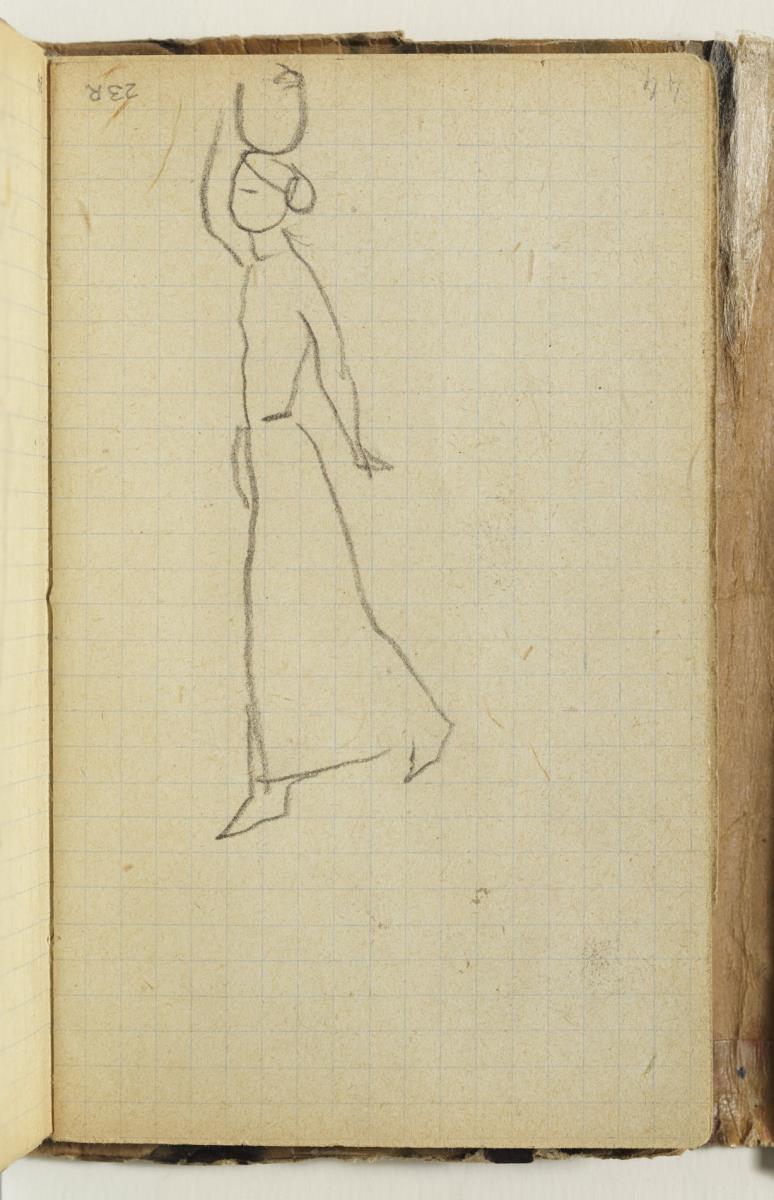 23R
44